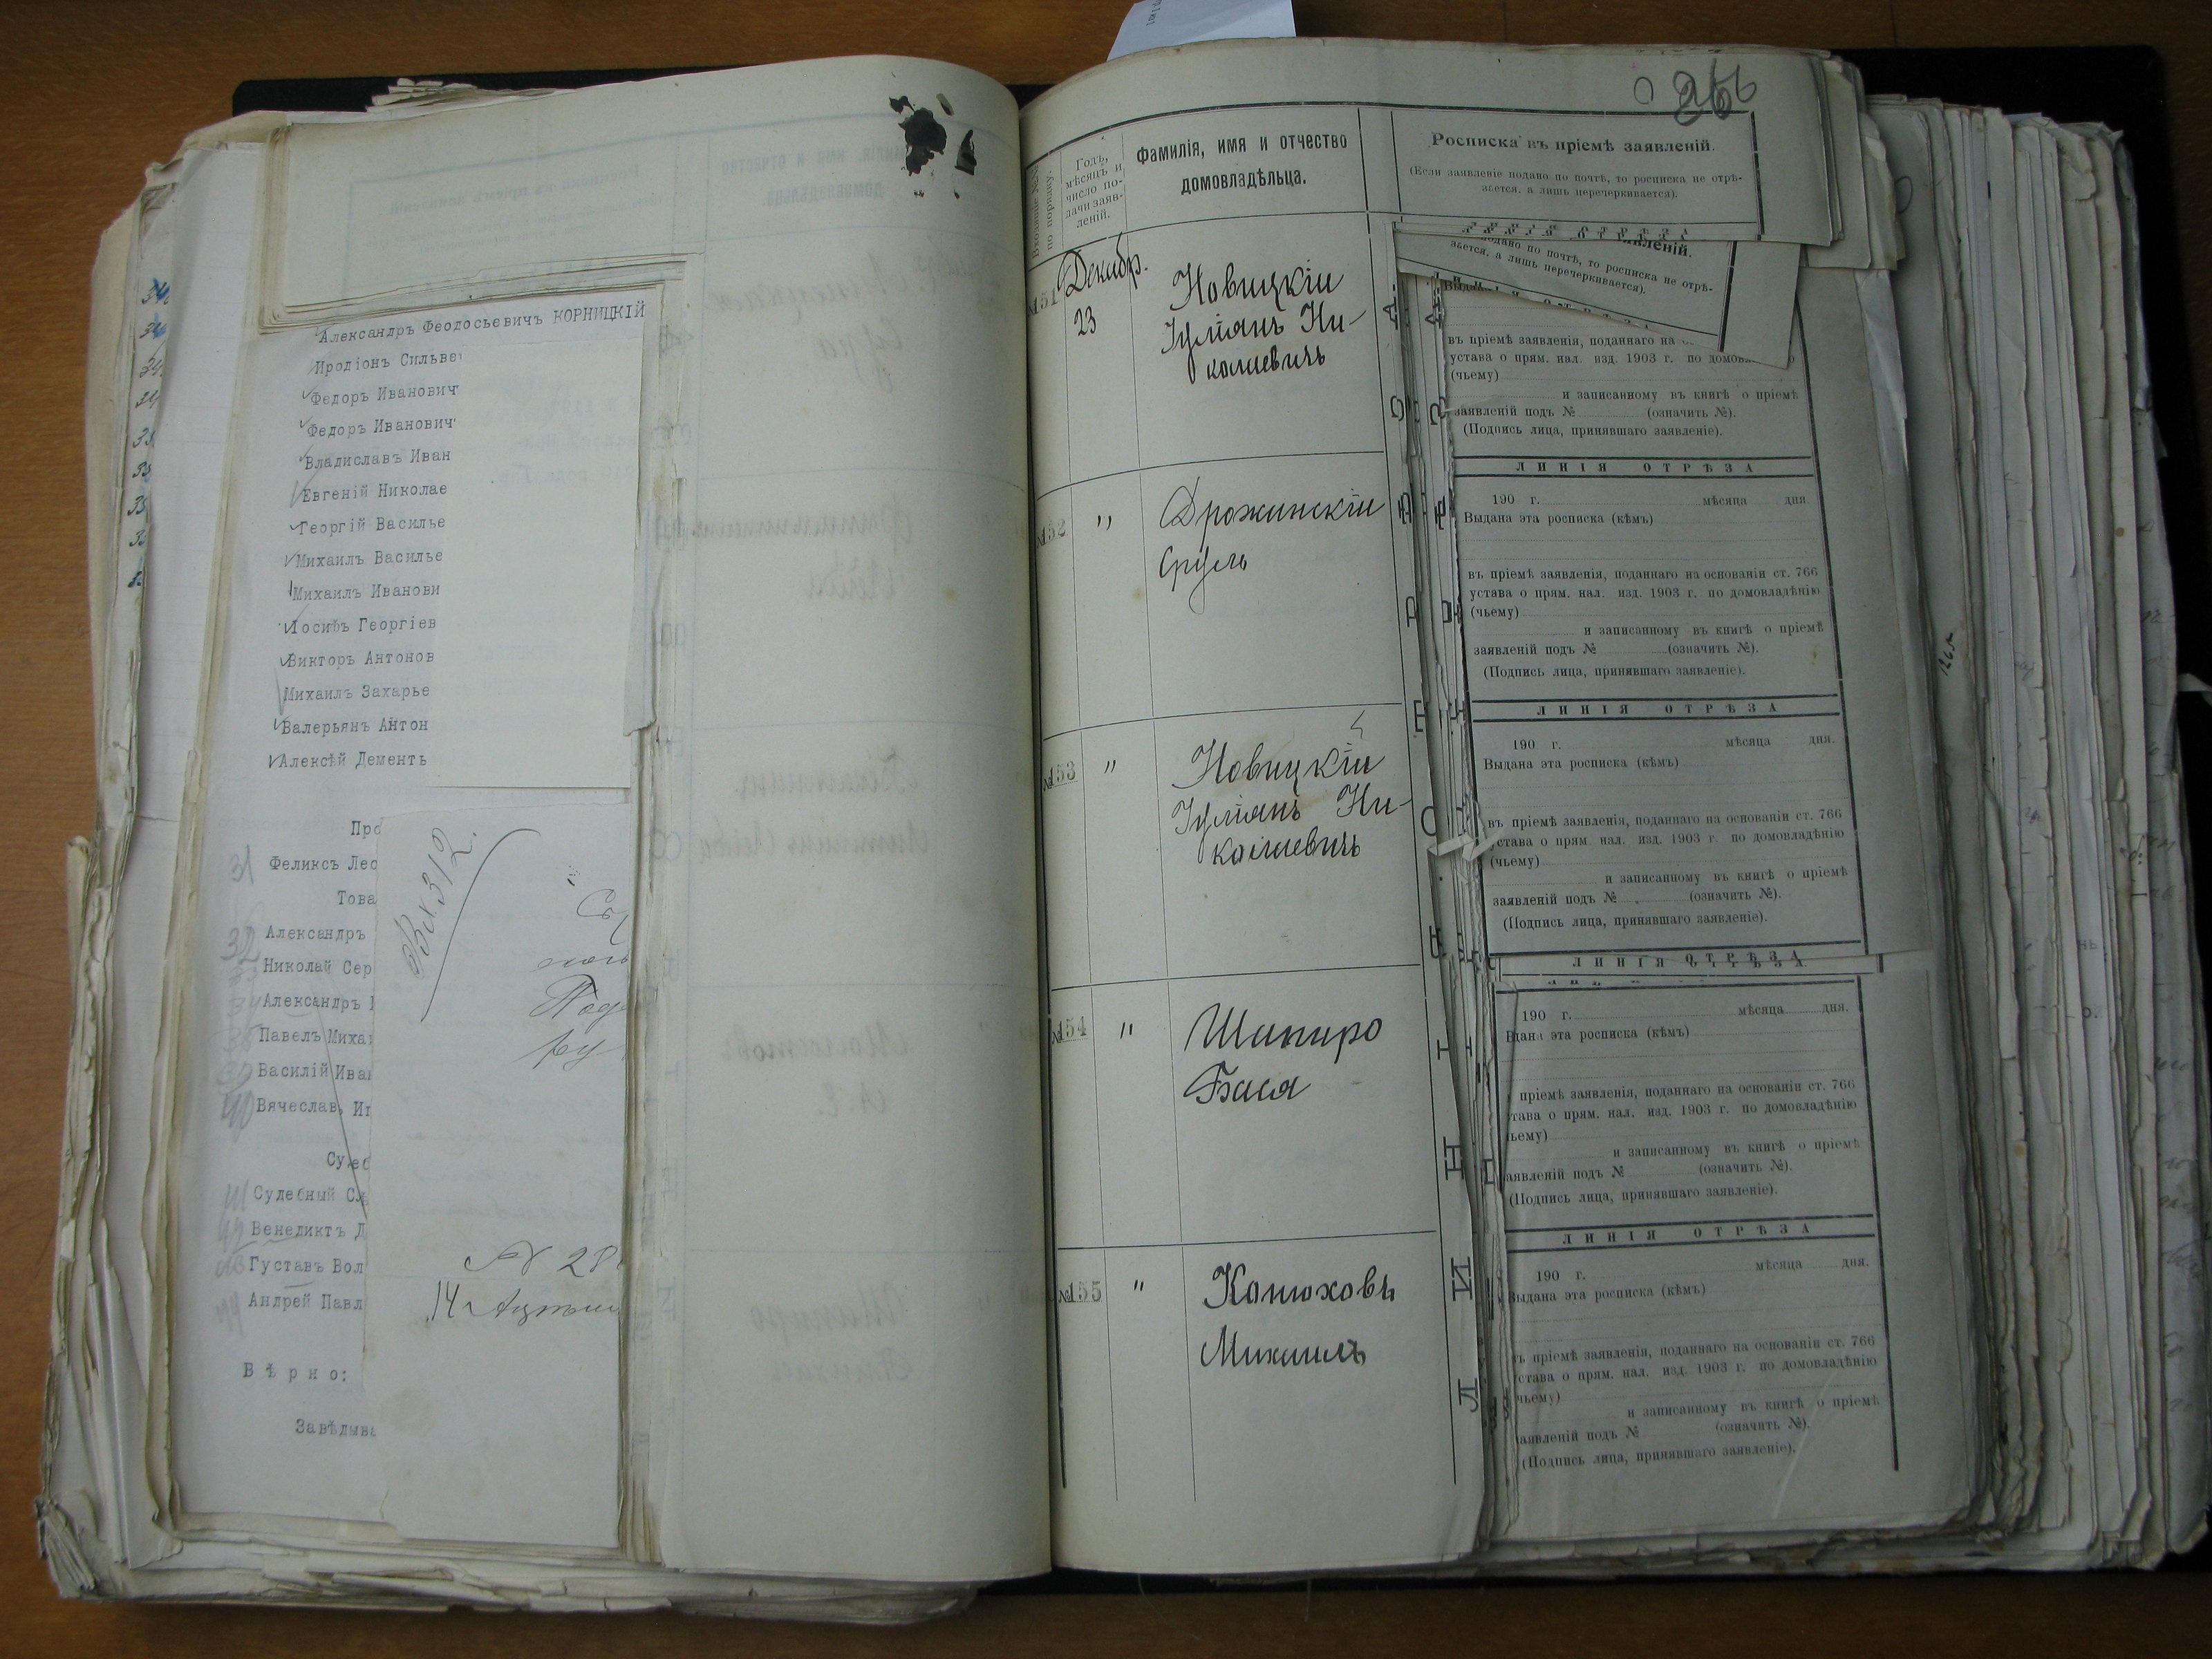 Александръ Феодосьевичъ КОРНИЦКІЙ
Иродіонъ Сильве
Федоръ Иванович
Федоръ Иванович
Владиславъ Иван
Евгеній Николае
Георгій Василье
Михаилъ Василье
Михаилъ Иванови
Іосифъ Георгіев
Викторъ Антонов
Михаилъ Захарье
Валерьянъ Антон
Алексѣй Дементь
Про
31 Феликсъ Лео
Това
32 Александръ
Николай Сер
Александръ
Павелъ Миха
Василій Иван
40 Вячеслав
Суде
41 Судебный Сл
42 Венедиктъ Д
Густавъ Вол
44 Андрей Павл
Вѣрно:
Завѣдыва
Вх 312.
Под
ру
№ 28
14 г
266
Входящіе №№ по порядку.
Годъ, мѣсяцъ и число подачи заявленій.
Фамилія, имя и отчество
домовладѣльца.
Росписка въ пріемѣ заявленій.
(Если заявленіе подано по почтѣ, то росписка не отрѣ-
зается, а лишь перечеркивается).
ЛИНІЯ ОТРѢЗА
подано по почтѣ, то росписка не отрѣ-
зается, а лишь перечеркивается).
№151 Декабр. 23
Новицкій
Іуліанъ Ни-
колаевичъ
въ пріемѣ заявленія, поданнаго на
устава о прям. нал. изд. 1903 г. по домов
(чьему)
и записанному въ книгѣ о пріемѣ
заявленій подъ № (означить №).
(Подпись лица, принявшаго заявленіе).
ЛИНІЯ ОТРѢЗА
№152 "
Дрожинскій
Сруль
190 г. мѣсяца дня.
Выдана эта росписка (кѣмъ)
въ пріемѣ заявленія, поданнаго на основаніи ст. 766
устава о прям. нал. изд. 1903 г. по домовладѣнію
(чьему)
и записанному въ книгѣ о пріемѣ
заявленій подъ № (означить №).
(Подпись лица, принявшаго заявленіе).
ЛИНІЯ ОТРѢЗА
№153 "
Новицкій
Іуліанъ Ни-
колаевичъ
190 г. мѣсяца дня.
Выдана эта росписка (кѣмъ)
въ пріемѣ заявленія, поданнаго на основаніи ст. 766
става о прям. нал. изд. 1903 г. по домовладѣнію
(чьему)
и записанному въ книгѣ о пріемѣ
заявленій подъ № (означить №).
(Подпись лица, принявшаго заявленіе).
ЛИНІЯ ОТРѢЗА
№154 "
Шапиро
Бася
190 г. мѣсяца дня.
дана эта росписка (кѣмъ)
пріемѣ заявленія, поданнаго на основаніи ст. 766
тава о прям. нал. изд. 1903 г. по домовладѣнію
ьему)
и записанному въ книгѣ о пріемѣ
аявленій подъ № (означить №).
(Подпись лица, принявшаго заявленіе).
ЛИНІЯ ОТРѢЗА
№155 "
Конюховъ
Михаилъ
190 г. мѣсяца дня.
Выдана эта росписка (кѣмъ)
ъ пріемѣ заявленія, поданнаго на основаніи ст. 766
става о прям. нал. изд. 1903 г. по домовладѣнію
чьему)
и записанному въ книгѣ о пріемѣ
аявленій подъ № (означить №).
(Подпись лица, принявшаго заявленіе).